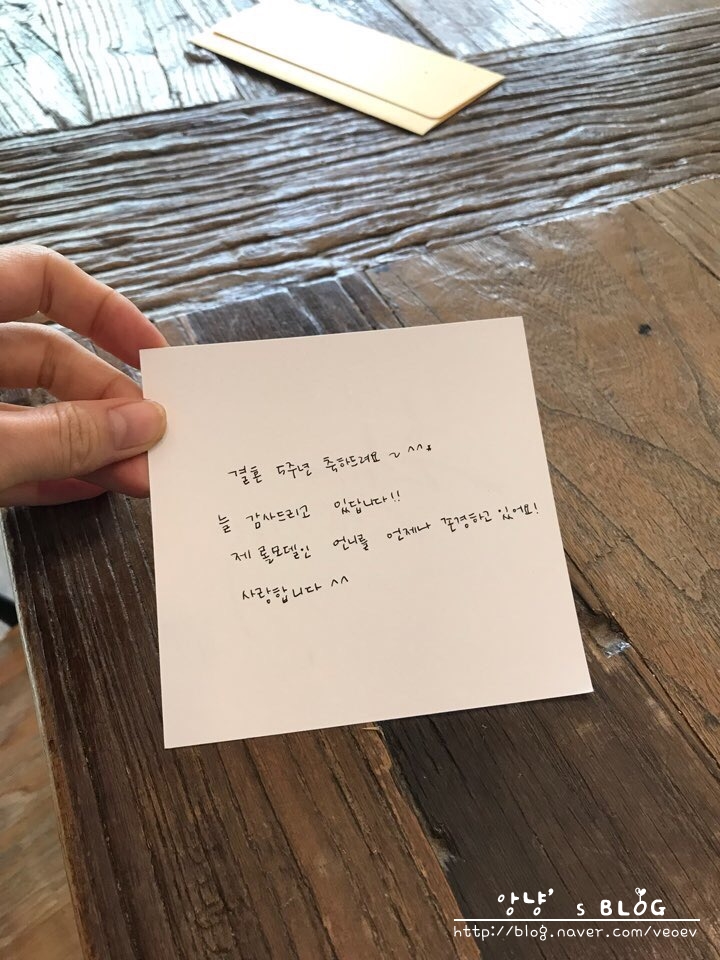 결혼 5주년 축하드려요 ~ ^^*
늘 감사드리고 있답니다!!
제 롤모델인 언니를 언제나 존경하고 있어요!
사랑합니다 ^^
앙냥's BLOG
http://blog.naver.com/veoev